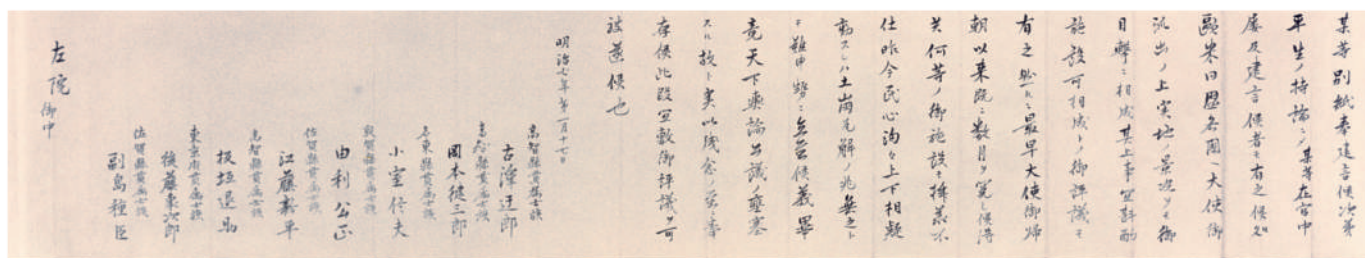 某等別紙奉建言候次第
平生ノ持論ニシテ某等在官中
屡及建言候者モ有之候処
歐米同盟各国ヘ大使御
派出ノ上実地ノ景况ヲモ御
目撃ニ相成其上事宜斟酌
施設可相成トノ御評議モ
有之然ルニ最早大使御帰
朝以来既ニ数月ヲ閲シ候得
共何等ノ御施設モ拝承不
仕昨今民心洶々上下相疑
動スレハ土崩瓦解ノ兆無之ト
モ難申勢ニ立至候義畢
竟天下輿論公議ノ壅塞
スル故ト実以残念ノ至ニ奉
存候此段宜敷御評議ヲ可
被遂候也
明治七年第一月十七日
高知縣貫属士族
古澤迂郎
高知縣貫属士族
岡本健三郎
名東縣貫属士族
小室信夫
敦賀縣貫属士族
由利公正
佐賀縣貫属士族
江藤新平
高知縣貫属士族
板垣退助
東京府貫属士族
後藤象次郎
佐賀縣貫属士族
副島種臣
左院 御中